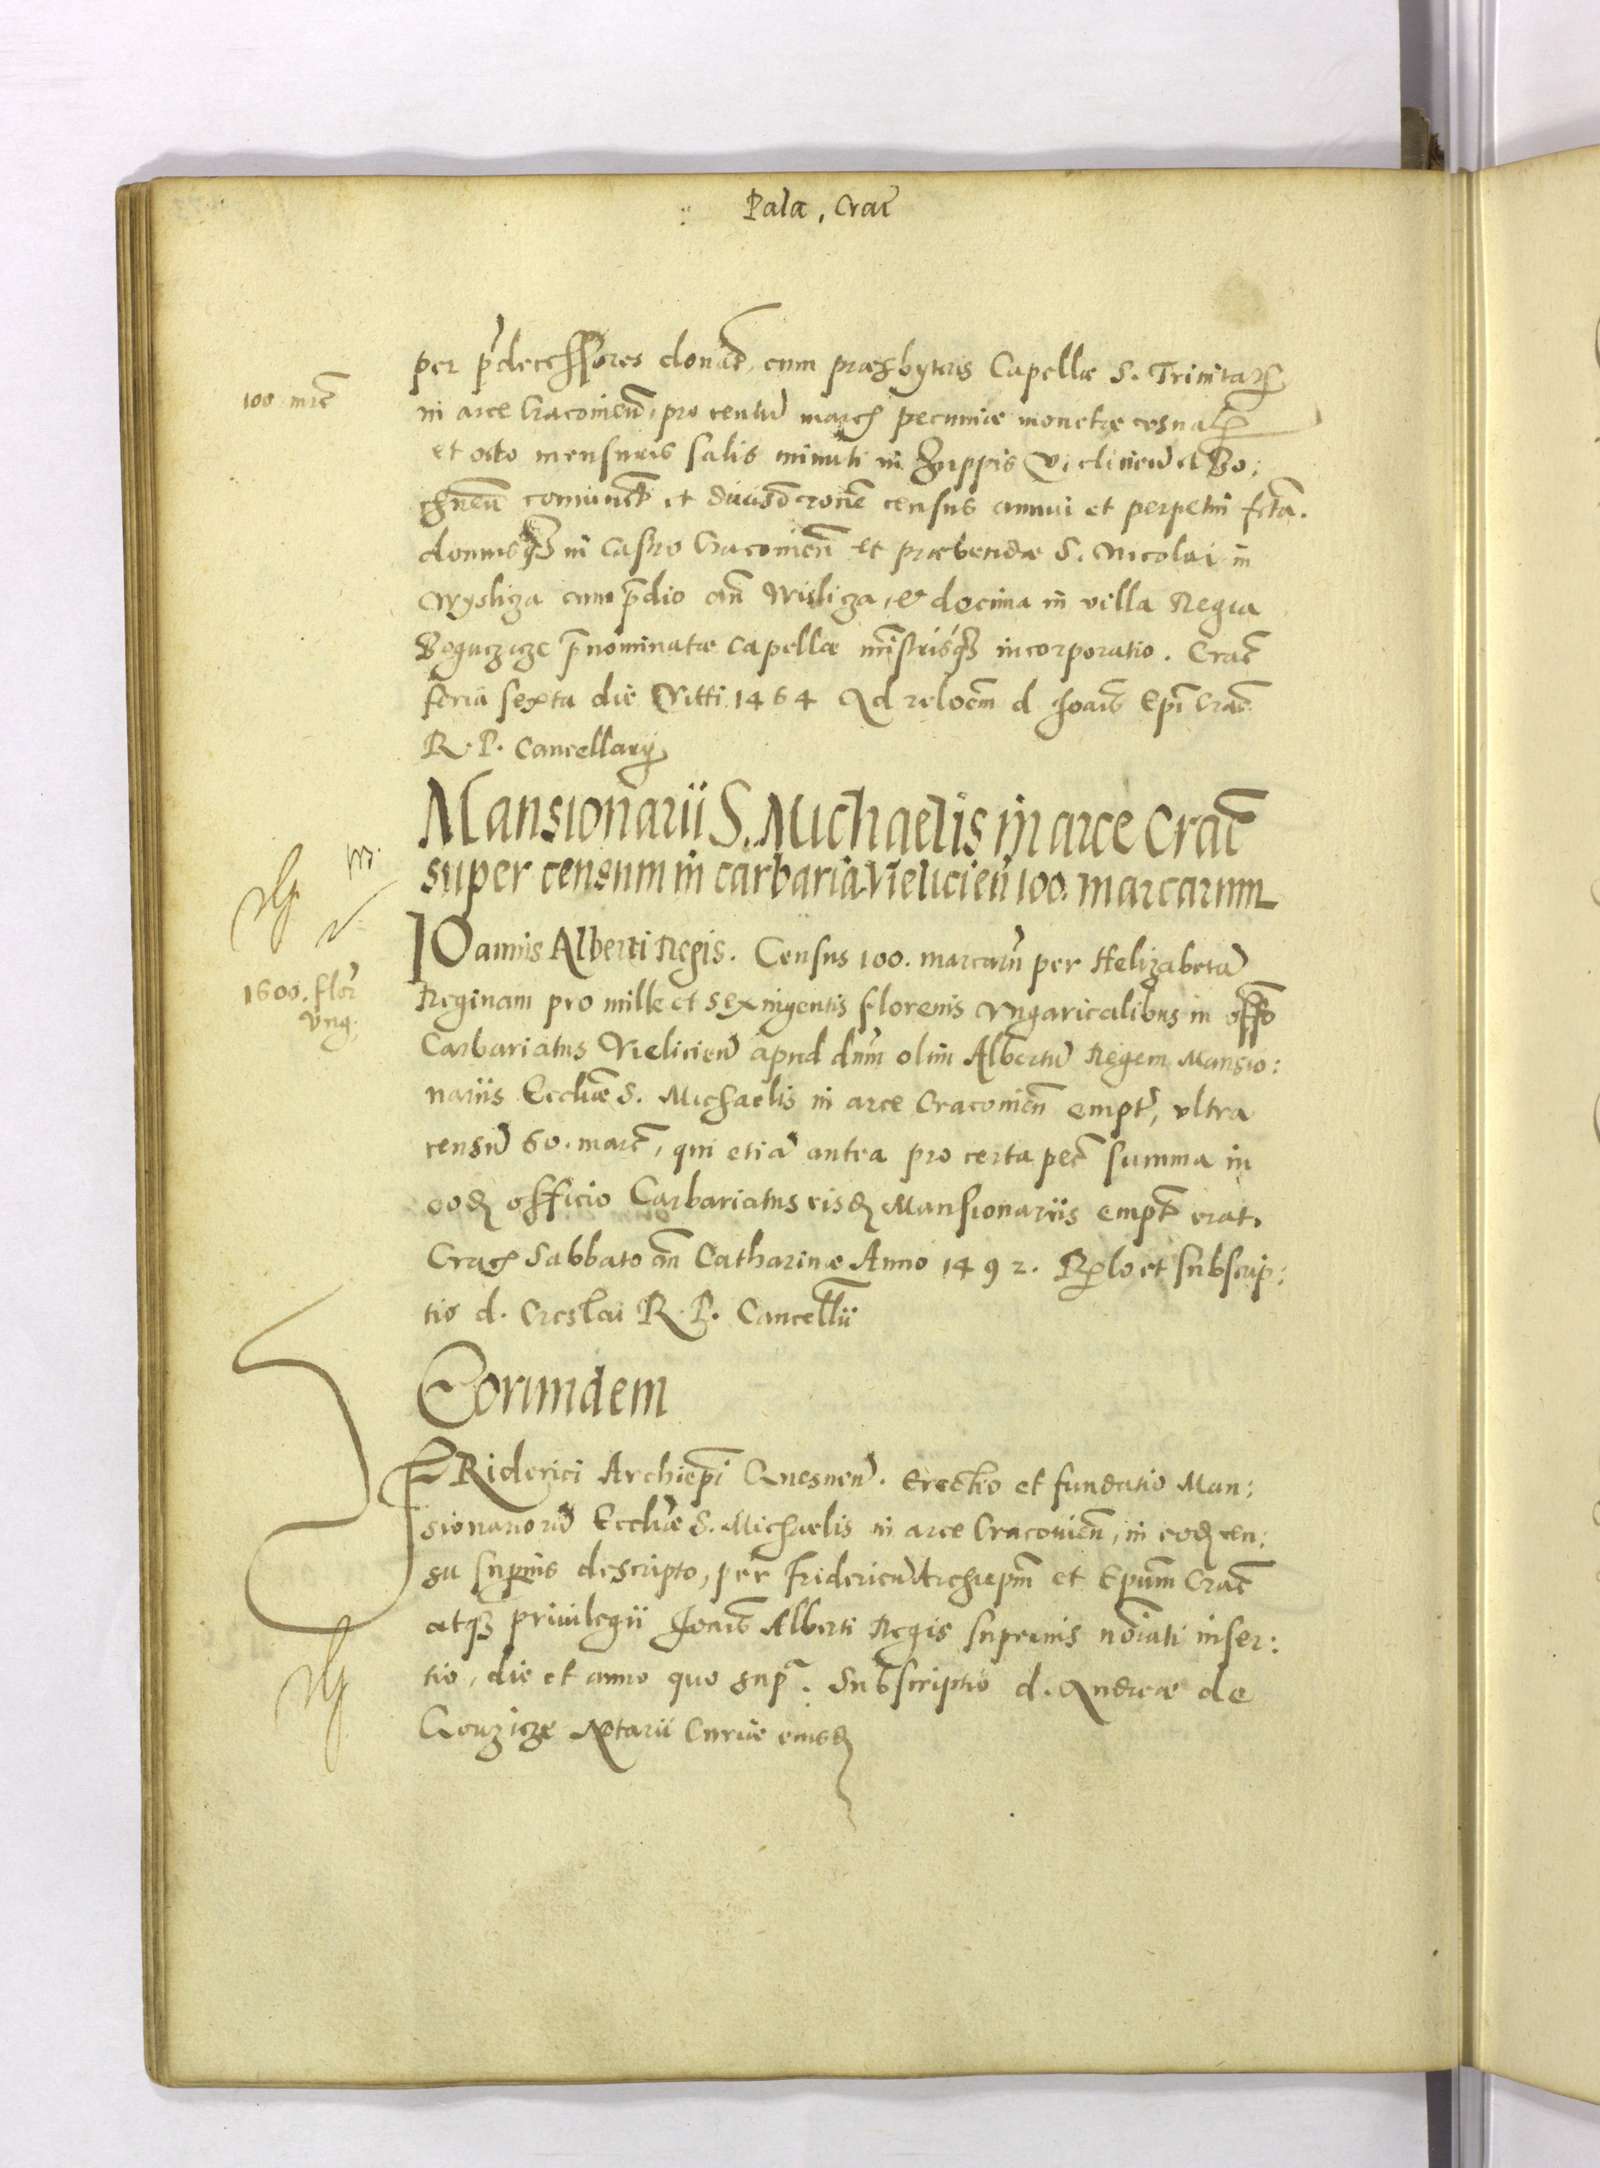 Pala, Crac̄
per p̄decessores donat̄, cum præsbyteris Capellæ S. Trinitatis
100 mrc̄
in arce Cracovień, pro centū march pecuniæ monetæ
et octo mensuris salis minuti in Zuppis Vieliciēn et Bo:
chneń census annui et perpetui fcta.
domusq3 in Castro Cracovień et præbendæ S. Nicolai in
Wysliza cum p̄dio an̄ Wisliza, et decima in villa Regia
Boguczicze p̄nominatæ Capellæ mīstrisq3 incorporatio. Crac̄
feria sexta die Vitti 1464 Ad reloēm d Joaīs Epī Crac̄
R. P. Cancellarij
Mansionarii S. Michaelis in arce Crac̄
super censum in carbaria Vielicień 100. marcarum
IOannis Alberti Regis. Census 100. marcarū per Helizabetā
1600. flor̄
Ung.
Reginam pro mille et sexingentis florenis Vngaricalibus in offo
Carbariatus Vielicień apud dnm̄ olim Albertū Regem Mansio:
nariis Eccliæ S. Michaelis in arce Cracovień empt̄, ultra
censū 60. marc̄, qui etiā antea pro certa pec̄ summa in
eod officio Carbariatus eisd Mansionariis empt̄ erat.
Crac Sabbato an̄ Catharinæ Anno 1492. Rlo et subscrip:
tio d. Creslai R. P. Cancellii
Eorundem
FRiderici Archiepī Gnesneń. Erectio et fundatio Man:
sionariorū Eccliæ S. Michaelis in arce Cracovień, in eod cen:
su supius descripto, per Fridericū Archiepm̄ et Epum̄ Crac̄
atq3 privilegii Joaīs Alberti Regis superius noīati inser:
tio, die et anno quo supa. Subscriptio d. Andreæ de
Gouzicze Notarii Curiæ eiusd